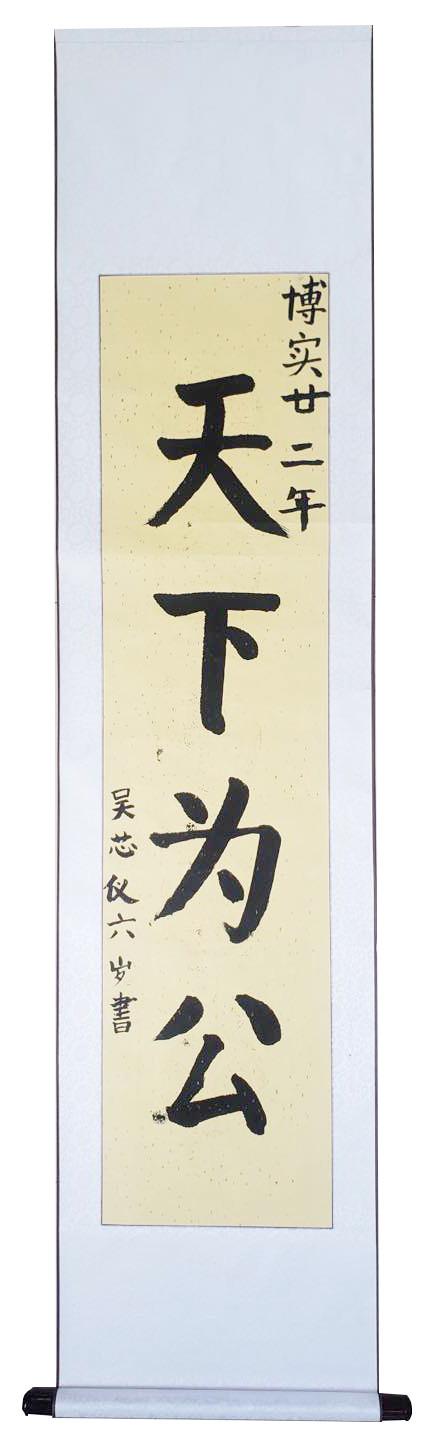 博实廿二年
天下为公
吴芯仪六岁書